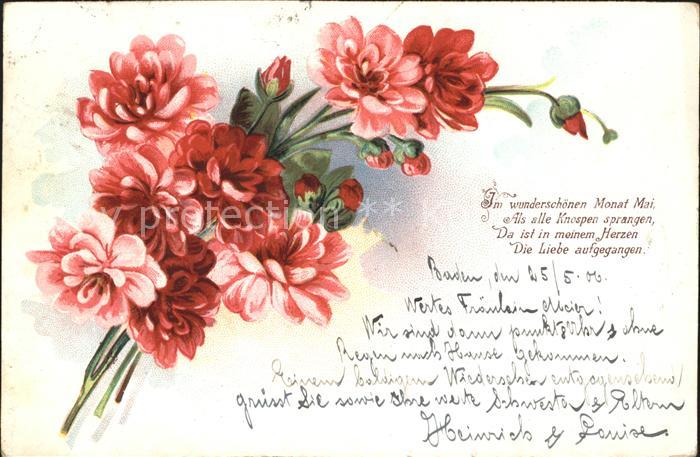 Im wunderschönen Monat Mai,
Als alle Knospen sprangen,
Da ist in meinem Herzen
Die Liebe aufgegangen.
Baden, den 25/5.00.
Wertes Fräulein Meier!
Wir sind dann & ohne
Regen nach Hause gekommen.
Einem baldigem Wiedersehen entgegensehend
grüsst Sie sowie Ihre werte Schwester & Eltern
Heinrich & Louise.
protection